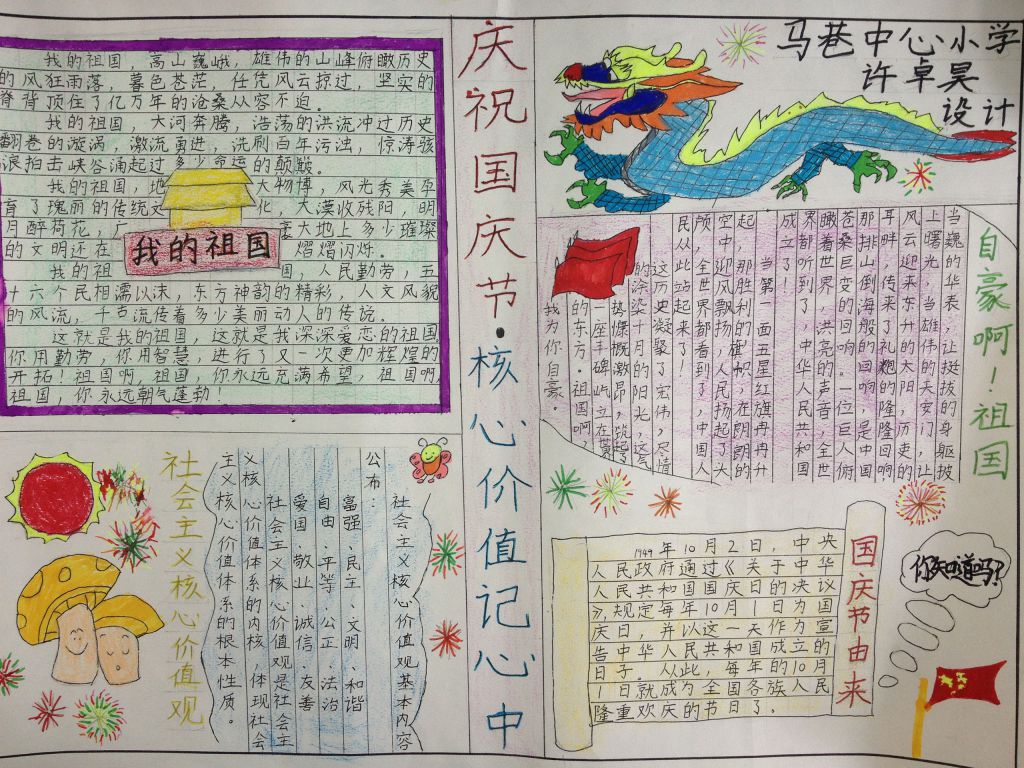 我的祖国，高山巍峨，雄伟的山峰俯瞰历史
的风狂雨落，暮色苍茫，任凭风云掠过，坚实的
脊背顶住了亿万年的沧桑从容不迫。
我的祖国，大河奔腾，浩荡的洪流冲过历史
翻卷的漩涡，激流勇进，洗刷百年污浊，惊涛骇
浪拍击峡谷涌起过多少命运的颠簸。
我的祖国，地大物博，风光秀美孕
育了瑰丽的传统文化，大漠收残阳，明
月醉荷花，广大地上多少璀璨
的文明还在熠熠闪烁。
我的祖国，人民勤劳，五
十六个民相濡以沫，东方神韵的精彩，人文风貌
的风流，千古流传着多少美丽动人的传说。
这就是我的祖国，这就是我深深爱恋的祖国
你用勤劳，你用智慧，进行了又一次更加辉煌的
开拓！祖国啊，祖国，你永远充满希望，祖国啊，
祖国，你永远朝气蓬勃！
我的祖国
社会主义核心价值观
社会主义核心价值观基本内容
公布：
富强、民主、文明、和谐
自由、平等、公正、法治
爱国、敬业、诚信、友善
社会主义核心价值观是社会主
义核心价值体系的内核，体现社会
主义核心价值体系的根本性质。
庆祝国庆节·核心价值记心中
马巷中心小学
许卓昊
设计
自豪啊！祖国
当巍的华表，让挺拔的身躯披
上曙光，当雄伟的天安门，让
风云迎来东升的太阳，历史的
耳畔，传来了礼炮的隆隆回响
那排山倒海般的回响，是中国
苍桑巨变的回响。一位巨人俯
瞰着世界，洪亮的声音，全世
界都听到了，中华人民共和国
成立了！
当第一面五星红旗冉冉升
起，那胜利的旗帜，在朗朗的
空中迎风飘扬，人民扬起了大
颅，全世界都看到了，中国人
民从此站起来了！
这历史凝聚了宏伟，尽情
的涂染十月的阳光，这气
势慷慨激昂，筑
一座丰碑屹立在
的东方。祖国啊，
我为你自豪。
国庆节由来
1949年10月2日，中央
人民政府通过《关于中华
人民共和国国庆日的决议
》，规定每年10月1日为国
庆日，并以这一天作为宣
告中华人民共和国成立的
日子。从此，每年的10月
1日就成为全国各族人民
隆重欢庆的节日了。
你知道吗？